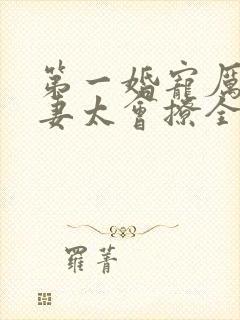 第一婚寵厲
妻太會撩全
羅菁